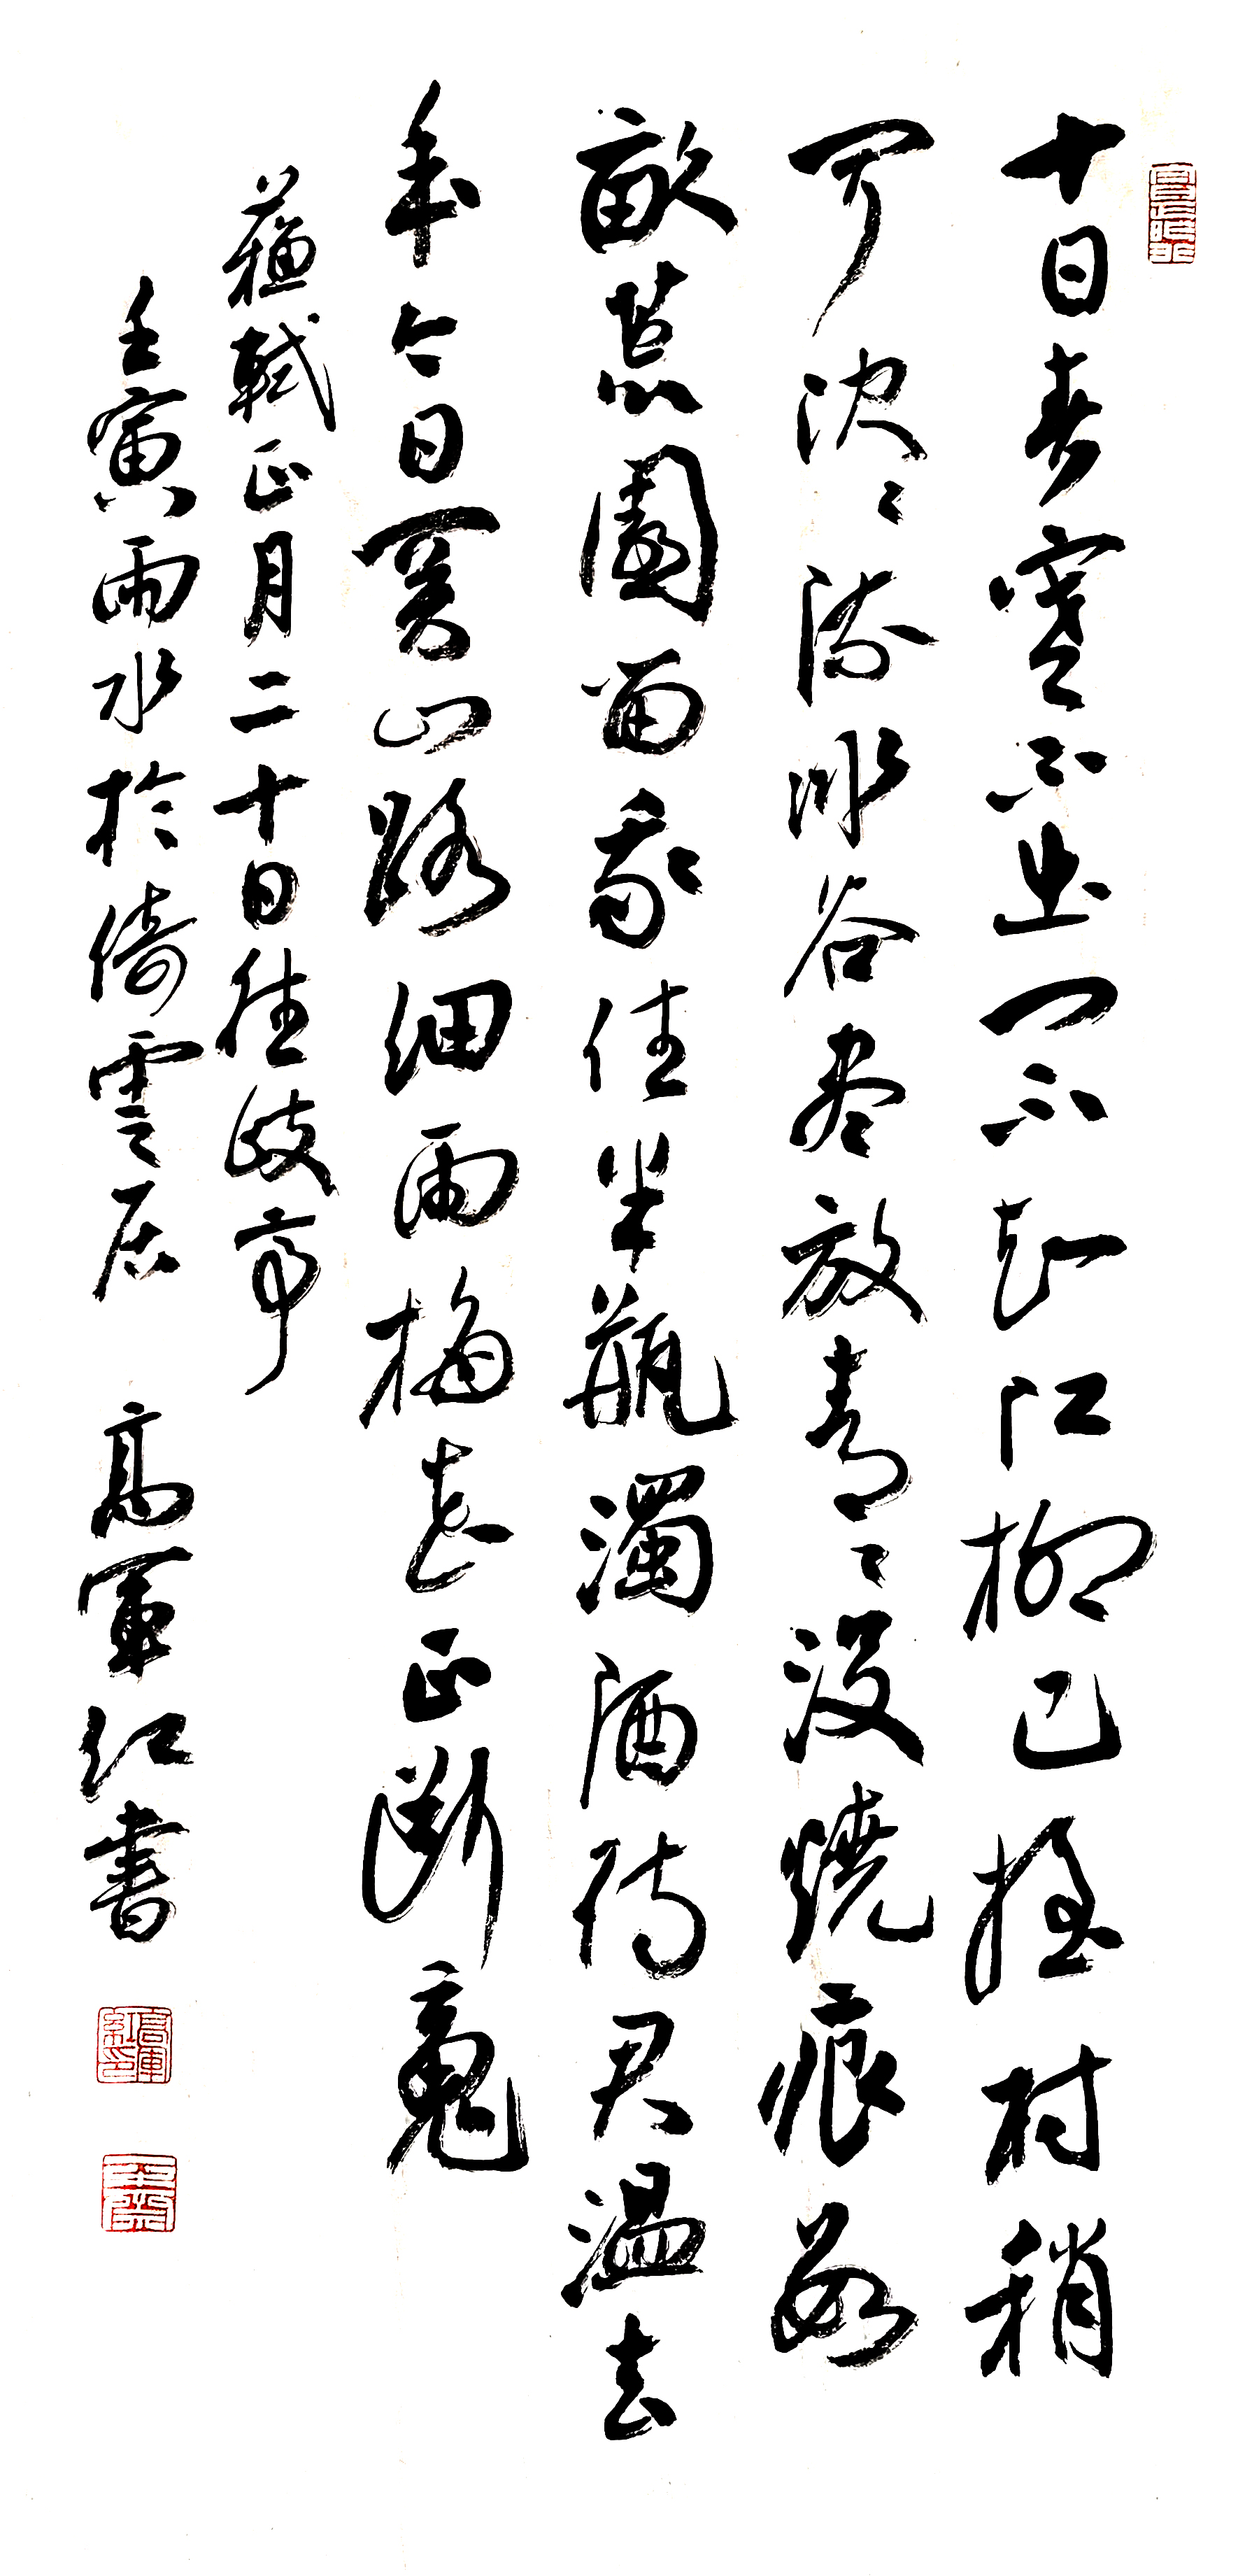 十日春寒不出門不知江柳已搖村稍
聞決々流冰谷盡放青々沒燒痕數
畝荒園留我住半瓶濁酒待君溫去
年今日關山路細雨梅花正斷魂
蘇軾正月二十日往歧亭
壬寅雨水於倚雲居 高軍紅書
高軍紅印
壬寅